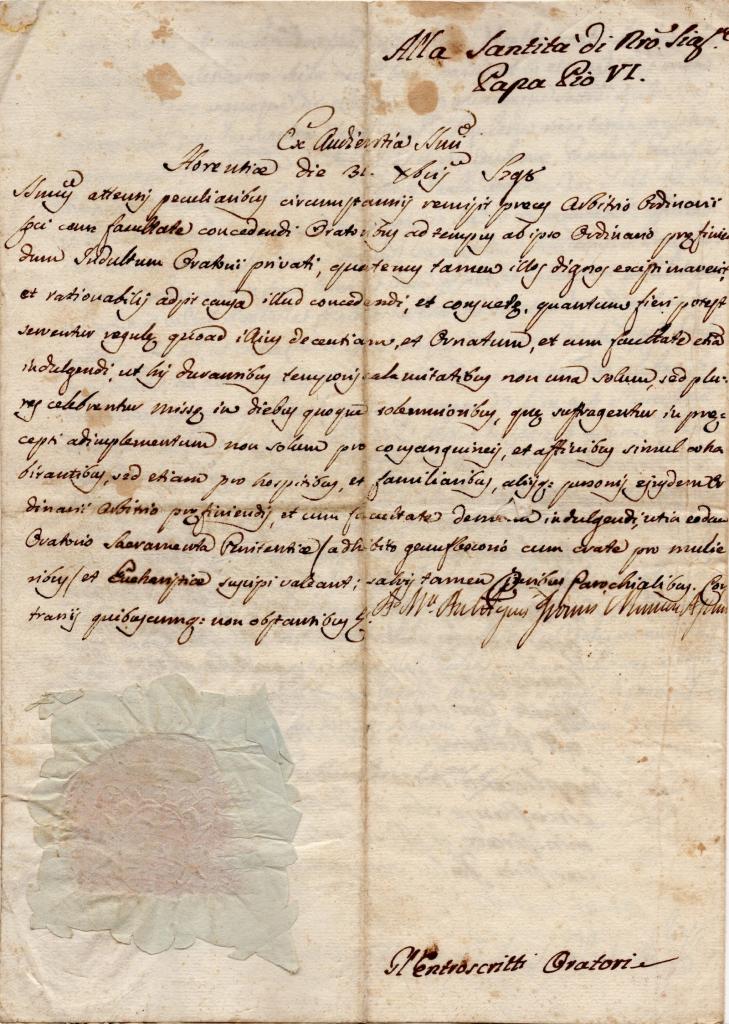 Alla Santità di Nrō Sig.re
Papa Pio VI.
Ex Audientia SSmi
Florentiæ die 31. Xbris 1798
SSmus attentis peculiaribus circumstantiis remisit preces Arbitrio Ordinarii
loci cum facultate concedendi Oratoribus ad tempus ab ipso Ordinario præfinien
dum Indultum Oratorii privati, quatenus tamen illos dignos existimaverit,
et rationabilis adsit causa illud concedendi, et consuetę, quantum fieri potest
serventur regulę quoad illius decentiam, et Ornatum, et cum facultate etiā
indulgendi, ut his durantibus temporis calamitatibus non una solum, sed plu-
res celebrentur missę in diebus quoque solemnioribus, quę suffragentur in prę-
cepti adimplementum non solum pro consanguineis, et affinibus simul coha
bitantibus, sed etiam pro hospitibus, et familiaribus, aliisq: personis ejusdem Or
dinarii Arbitrio pręfiniendis, et cum facultate demum indulgendi, ut in eodem
Oratorio Sacramenta Pænitentiæ (adhibito genuflexorio cum crate pro mulie
ribus) et Eucharistiæ suscipi valeant; salvis tamen Juribus Parochialibus. Con
trariis quibuscumq: non obstantibus
Gl'entroscritti Oratori